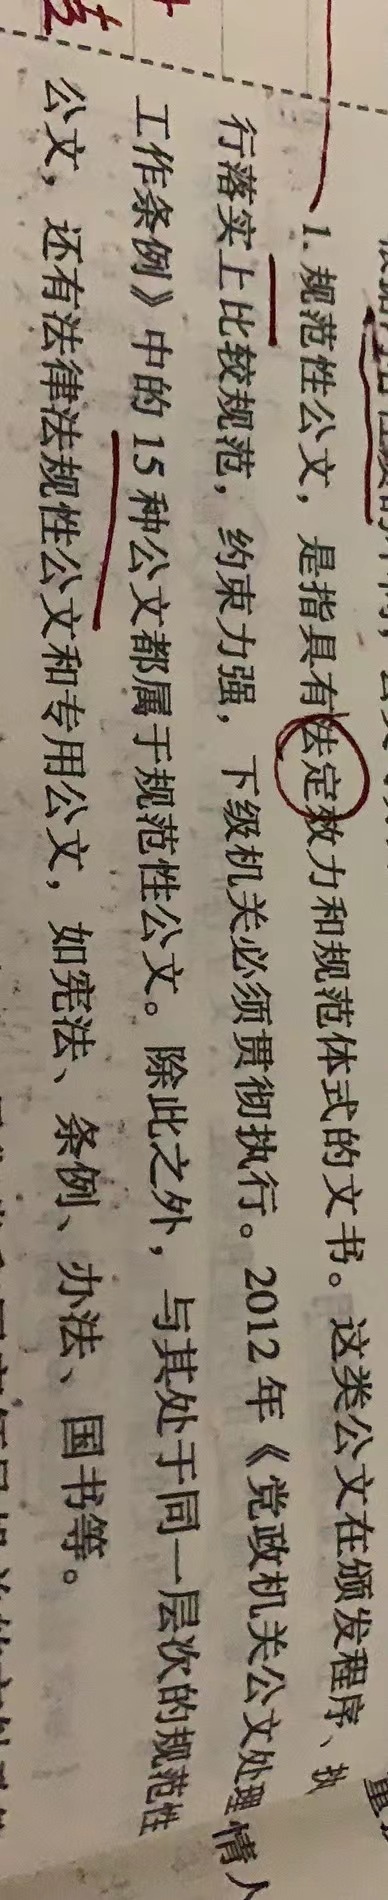 1. 规范性公文，是指具有法定效力和规范体式的文书。这类公文在颁发程序、执
行落实上比较规范，约束力强，下级机关必须贯彻执行。2012 年《党政机关公文处理
工作条例》中的 15 种公文都属于规范性公文。除此之外，与其处于同一层次的规范性
公文，还有法律法规性公文和专用公文，如宪法、条例、办法、国书等。
情人